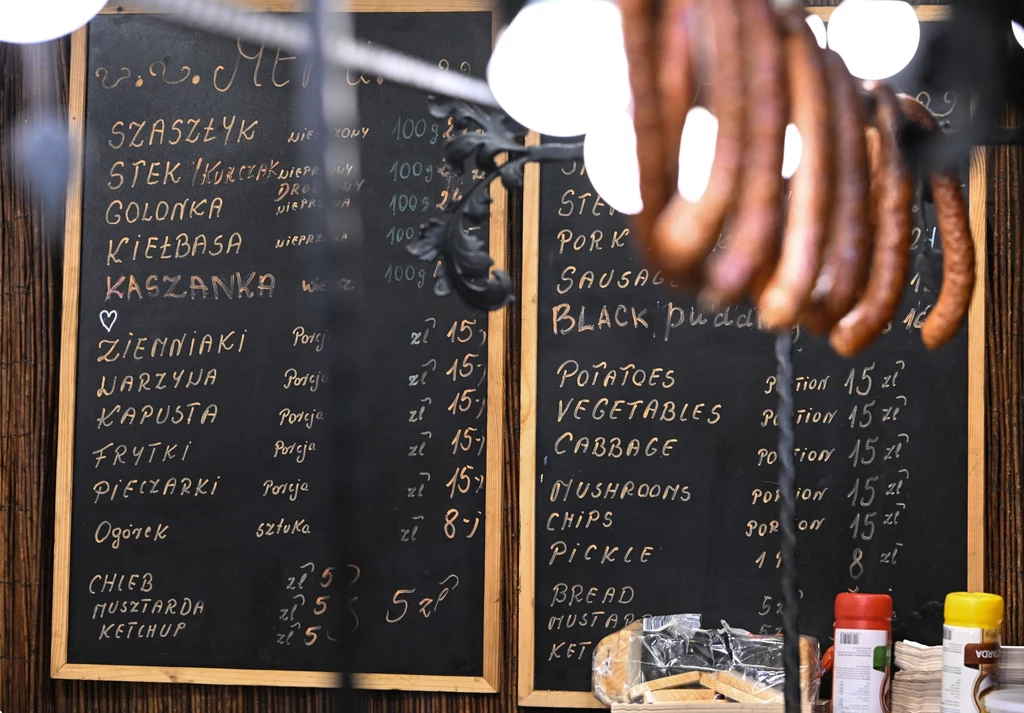 Menu
SZASZŁYK 100g
STEK /KURCZAK 100g
DROBIOWY
GOLONKA 100g
KIEŁBASA
KASZANKA 100g
ZIEMNIAKI Porcja zł 15,-
WARZYWA Porcja zł 15,-
KAPUSTA Porcja zł 15,-
FRYTKI Porcja zł 15,-
PIECZARKI Porcja zł 15,-
Ogórek sztuka zł 8,-
CHLEB zł 5
MUSZTARDA zł 5 5 zł
KETCHUP zł 5
PORK
BLACK pudding
POTATOES PORTION 15 zł
VEGETABLES PORTION 15 zł
CABBAGE PORTION 15 zł
MUSHROOMS PORTION 15 zł
CHIPS PORTION 15 zł
PICKLE 8 zł
BREAD 5